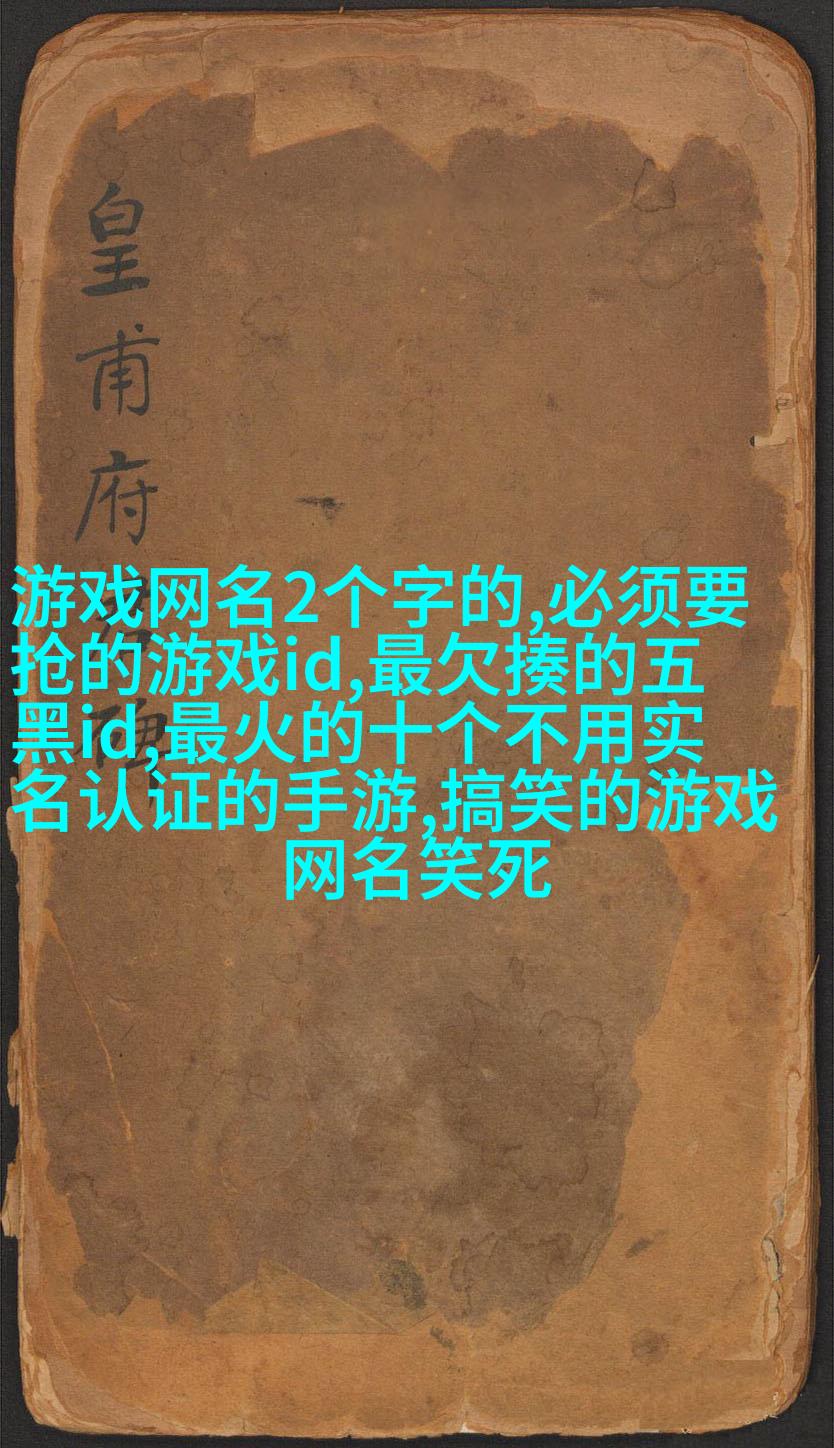 皇甫府君碑
游戏网名2个字的,必须要
抢的游戏id,最欠揍的五
黑id,最火的十个不用实
名认证的手游,搞笑的游戏
网名笑死